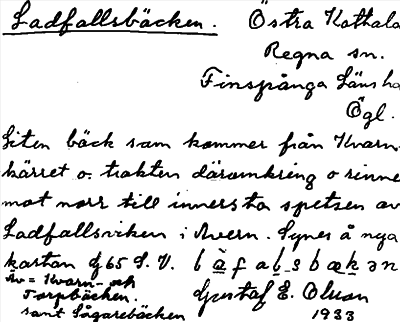 Ladfallsbäcken. Östra Kothala
Regna sn.
Finspånga Läns ha
Ögl.
Liten bäck som kommer från Kvarn-
kärret o. trakten däromkring o rinne
mot norr till innersta spetsen av
Ladfallsviken i Avern. Synes å nya
kartan Of 65 S. V. b à f a b s b æ k ə n
Äv = Kvarn- och
Torpbäcken. Gustaf E. Olson
samt Sågarebäcken 1933